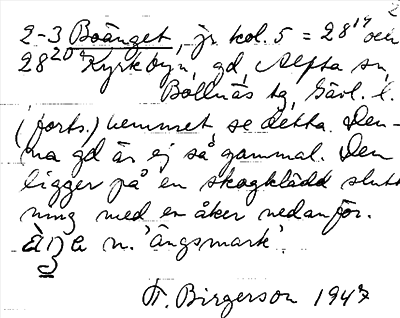 2
2-3 Boänget, jr kol. 5 = 28¹⁹ och
28²⁰ Kyrkbyn, gd, Alfta sn,
Bollnäs tg, Gävl. l.
(forts.) hemmet, se detta. Den-
na gd är ej så gammal. Den
ligger på en skogklädd slutt
ning med en åker nedanför.
Ä n. 'Ängsmark'.
F. Birgerson 1947